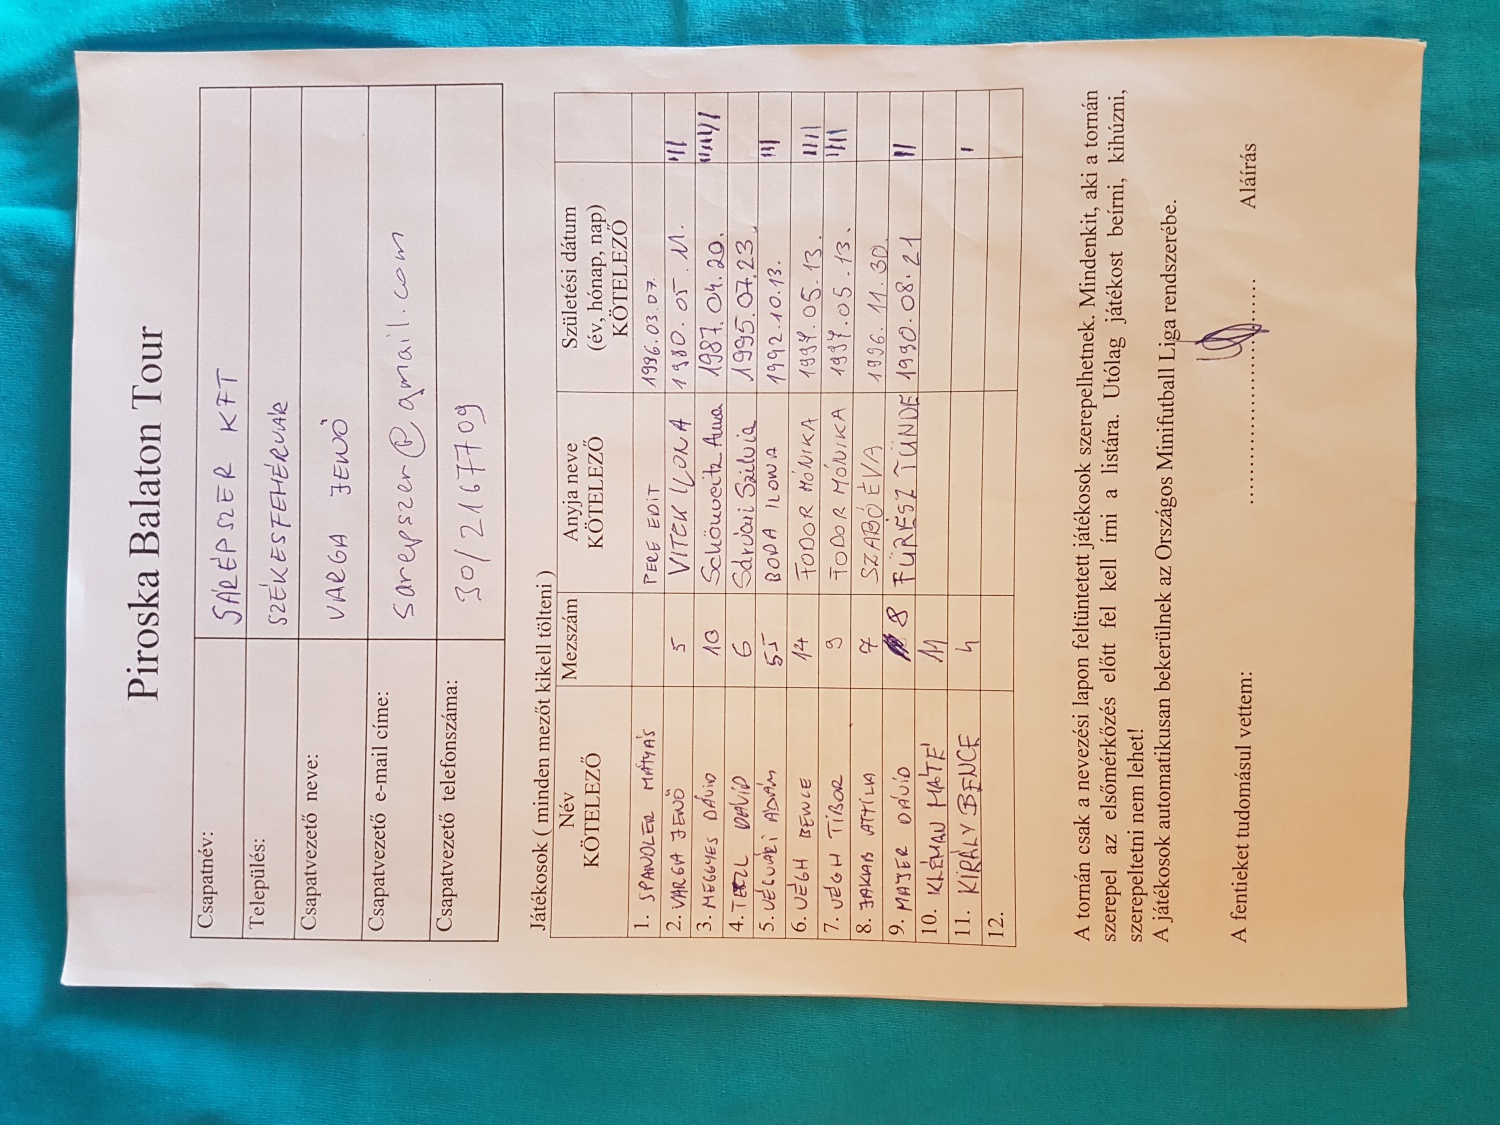 Piroska Balaton Tour
Csapatnév: SÁRÉPSZER KFT
Település: SZÉKESFEHÉRVÁR
Csapatvezető neve: VARGA JENŐ
Csapatvezető e-mail címe: sarepszer@gmail.com
Csapatvezető telefonszáma: 30/2167709
Játékosok ( minden mezőt kikell tölteni )
Név KÖTELEZŐ Mezszám Anyja neve KÖTELEZŐ Születési dátum (év, hónap, nap) KÖTELEZŐ
1. SPANDLER MÁTYÁS PERE EDIT 1996.03.07.
2. VARGA JENŐ 5 VITEK ILONA 1980.05.11.
3. MEGGYES DÁVID 10 Anna 1987.04.20.
4. DAVID 6 Sárvári Szilvia 1995.07.23.
5. VÉGVÁRI ÁDÁM 55 BODA ILONA 1992.10.13.
6. VÉGH BENCE 14 FODOR MÓNIKA 1997.05.13.
7. VÉGH TIBOR 9 FODOR MÓNIKA 1997.05.13.
8. JAKAB ATTILA 7 SZABÓ ÉVA 1996.11.30.
9. MAJER DÁVID 8 FŰRÉSZ TÜNDE 1990.08.21
10. KLÉMAN MÁTÉ 11
11. KIRÁLY BENCE 4
12.
A tornán csak a nevezési lapon feltüntetett játékosok szerepelhetnek. Mindenkit, aki a tornán
szerepel az elsőmérkőzés előtt fel kell írni a listára. Utólag játékost beírni, kihúzni,
szerepeltetni nem lehet!
A játékosok automatikusan bekerülnek az Országos Minifutball Liga rendszerébe.
A fentieket tudomásul vettem: Aláírás